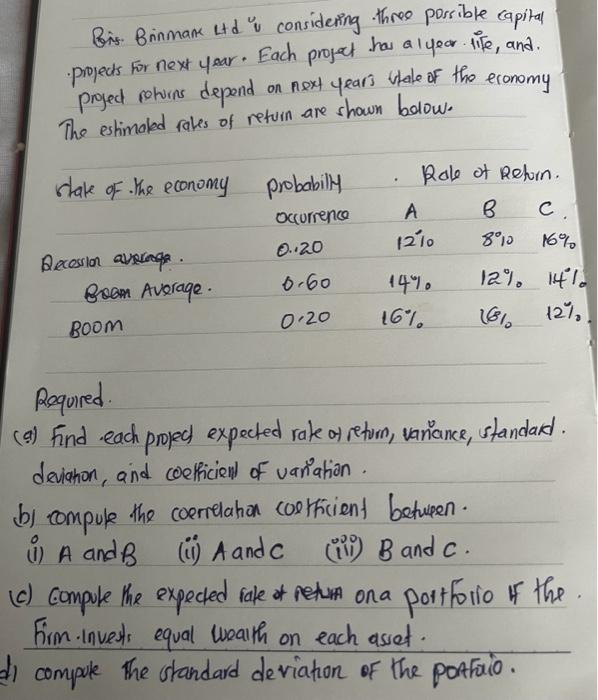 Brinmann Ltd is considering three possible capital
projects for next year. Each project has a 1 year life, and
project returns depend on next year's state of the economy
The estimated rates of return are shown below.
State of the economy probability Rate of Return.
occurrence A B C.
Recession average. 0.20 12% 8% 16%
Boom Average. 0.60 14% 12% 14%
BOOM 0.20 16% 16% 12%
Required.
(a) Find each project expected rate of return, variance, standard.
deviation, and coefficient of variation.
b) compute the coerrelation coefficient between.
(i) A and B (ii) A and C (iii) B and C.
(c) Compute the expected rate of return on a portforio if the.
Firm invests equal wealth on each asset.
d) compute the standard deviation of the portfolio.